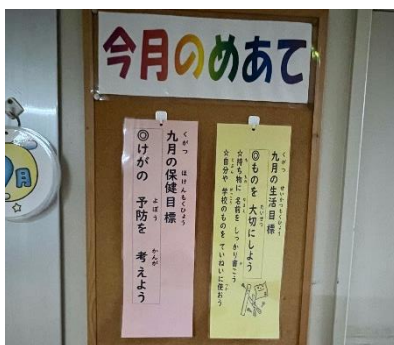 今月のめあて
九月の生活目標
◎ものを 大切にしよう
☆持ち物に 名前を しっかり書こう
☆自分や 学校のものを ていねいに使おう
九月の保健目標
◎けがの 予防を 考えよう
月